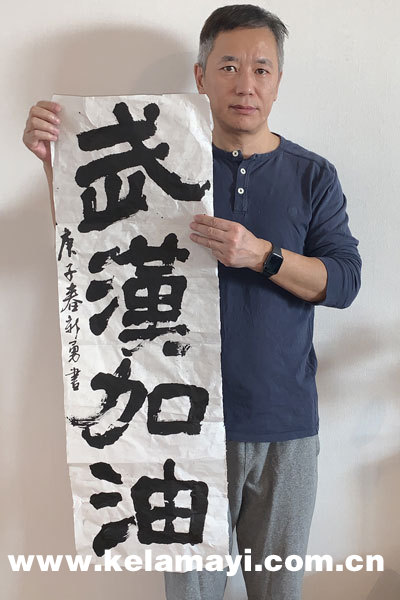 武漢加油
庚子春新勇書
www.kelamayi.com.cn